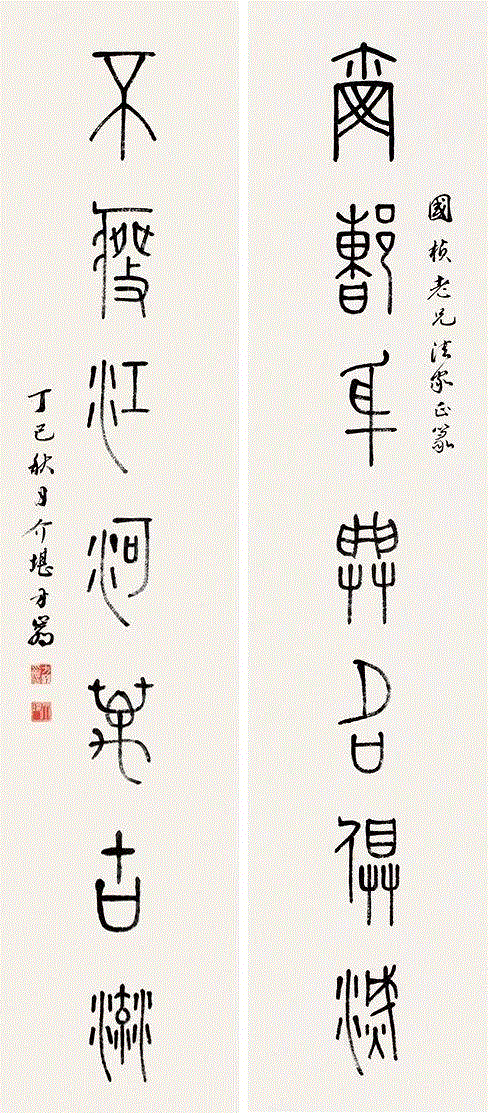 國楨老兄法家正篆
爾曹身與名俱滅
不廢江河萬古流
丁巳秋月介堪方嵒